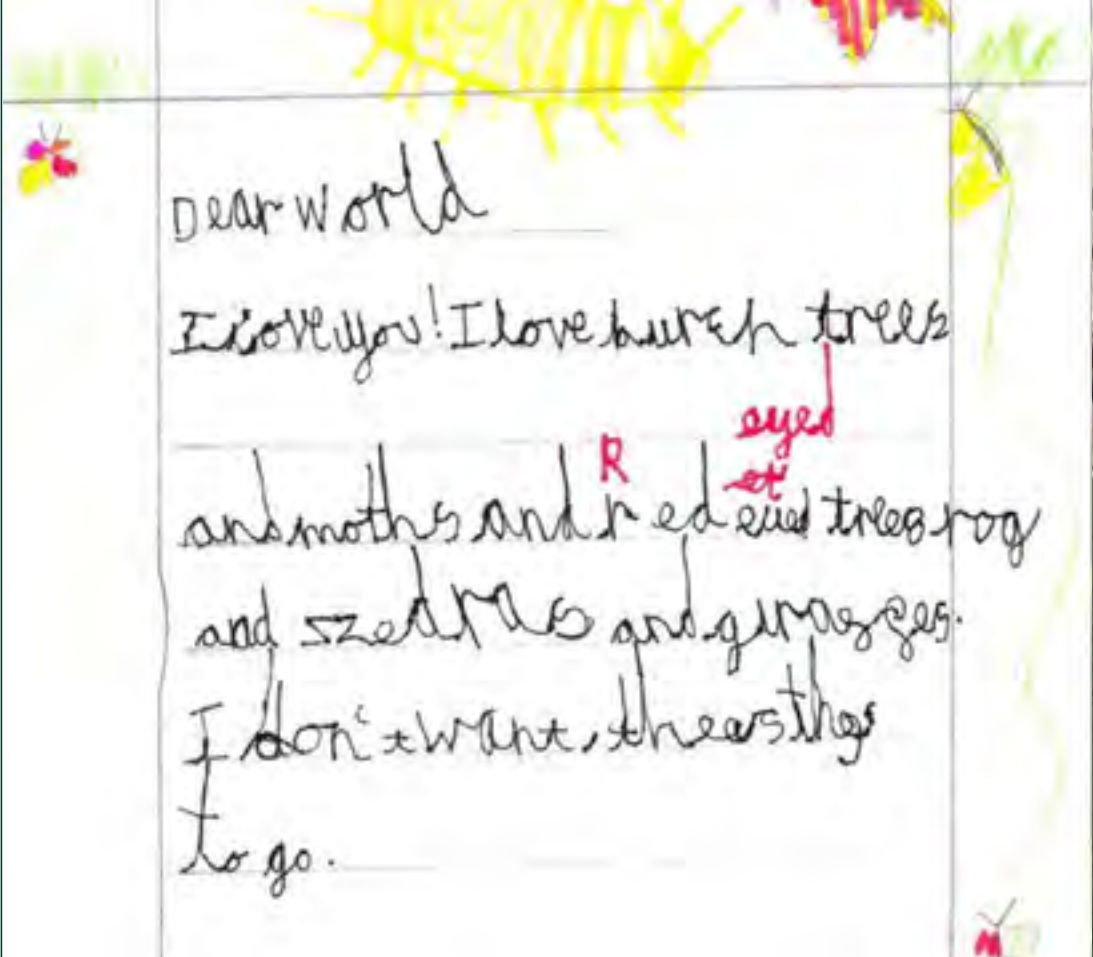 Dear world
I love you! I love burch trees
eyed
R
and moths and red eued treesrog
and szedras and giraffes.
I don't want, theas thgs
to go.